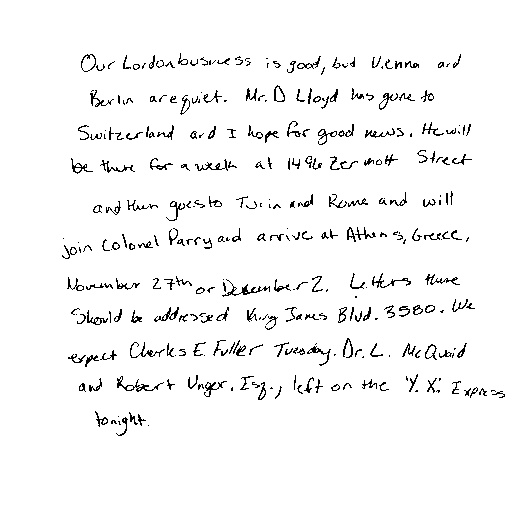 Our London business is good, but Vienna and
Berlin are quiet. Mr. D Lloyd has gone to
Switzerland and I hope for good news. He will
be there for a week at 1496 Zermott Street
and then goes to Turin and Rome and will
join Colonel Parry and arrive at Athens, Greece,
November 27th or December 2. Letters there
Should be addressed King James Blvd. 3580. We
expect Charles E. Fuller Tuesday. Dr. L. McQuaid
and Robert Unger, Esq., left on the "Y. X." Express
tonight.